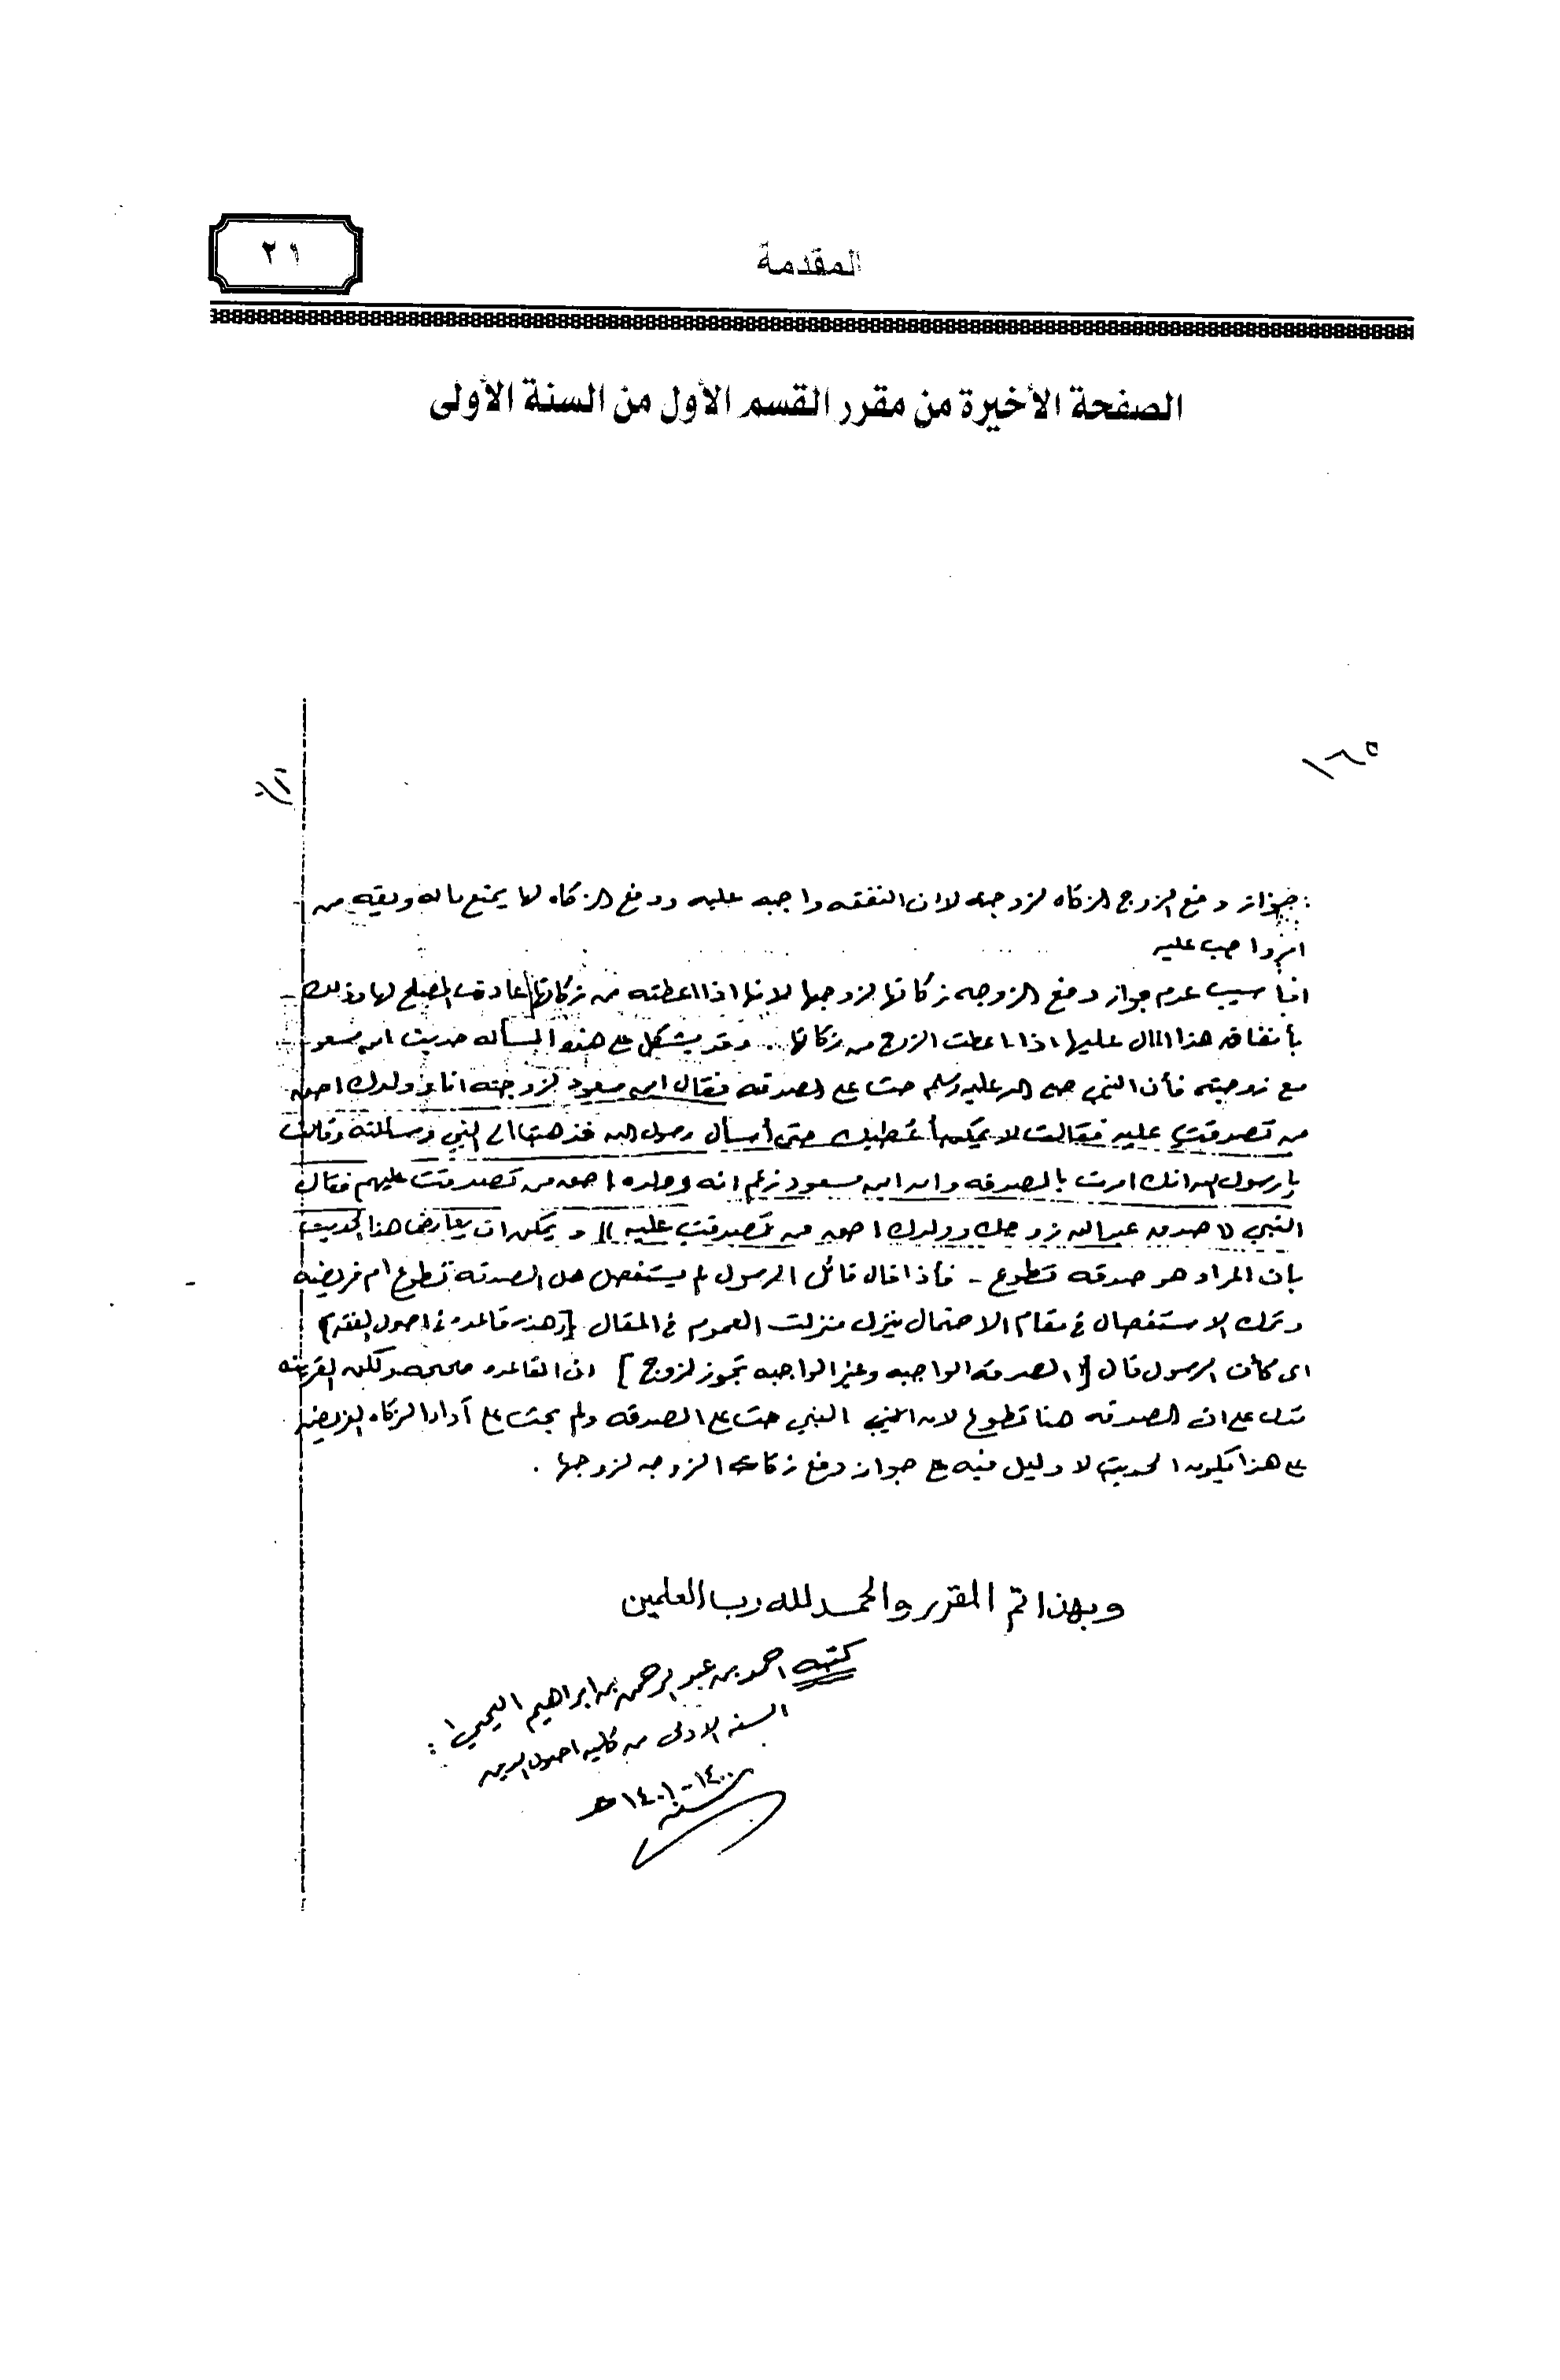 المقدمة
٢١
الصفحة الأخيرة من مقرر القسم الأول من السنة الأولى
١٦٥
جواز دفع الزوج الزكاه لزوجه لان النفقه واجبه عليه ودفع الزكاه لها يمنع ماله ويقيه من
واجب عليه
اما سبب عدم جواز دفع الزوجه زكاتها لزوجها لانها اذا اعطته من زكاتها عادت المصلح لها وذلك
بأنفاقه هذا المال عليها اذا اعطت الزوج من زكاتها .. وقد يشكل على هذه المسأله حديث ابن مسعود
مع زوجته فأن النبي صلى الله عليه وسلم حث على الصدقه فقال ابن مسعود لزوجته انا وولدك احق
من تصدقت عليه فقالت لا يمكن أعطيك حتى أسأل رسول الله فذهبت الى النبي وسألته وقالت
يا رسول الله انك امرت بالصدقه وان ابن مسعود زعم انه وولده احق من تصدقت عليهم فقال
النبي (( صدق عبدالله زوجك وولدك احق من تصدقت عليه )) ويمكن ان يعارض هذا الحديث
بان المراد هو صدقه تطوع - فأذا قال قائل الرسول لم يستفصل هل الصدقه تطوع ام فريضه
وترك الاستفصال في مقام الاحتمال ينزل منزلت العموم في المقال [وهذه قاعده في اصول الفقه]
اى كأن الرسول قال [الصدقه الواجبه وغير الواجبه تجوز لزوج] ان القاعده صحيحه ولكن القرينه
تدل على ان الصدقه هنا تطوع لان النبي حث على الصدقه ولم يحث على أداء الزكاه الفريضه
على هذا يكون الحديث لا دليل فيه على جواز دفع زكاة الزوجه لزوجها .
وبهذا تم المقرر والحمد لله رب العلمين
كتبه احمد بن عبد الرحمن بن ابراهيم اليحيى :
السنه الاولى من كليه اصول الدين
سنه ١٤٠٠-١٤٠١ هـ